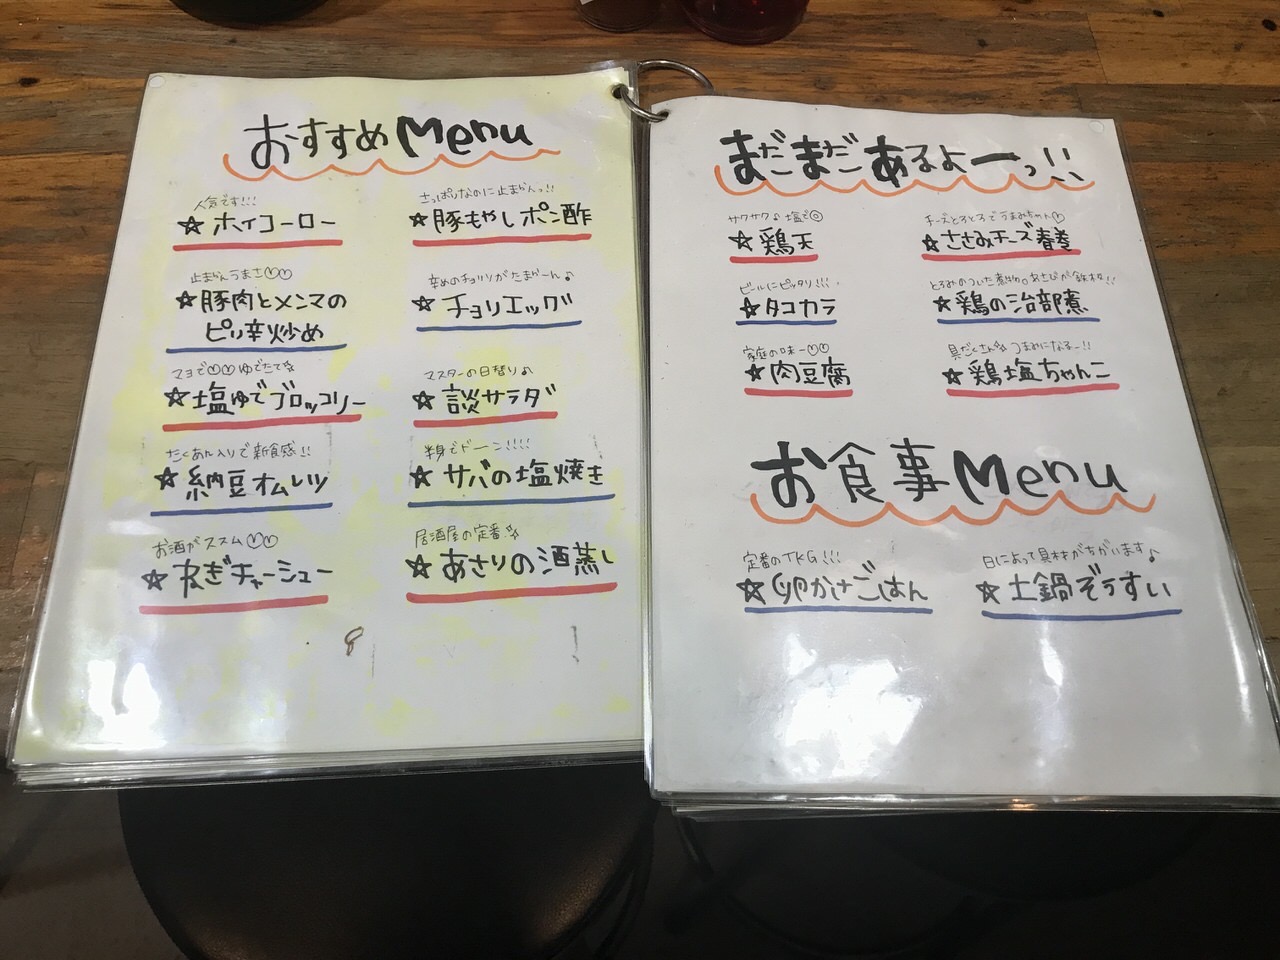 おすすめMenu
人気です!!!
☆ホイコーロー
さっぱりなのに止まらんっ!!
☆豚もやしポン酢
止まらんうまさ♡♡
☆豚肉とメンマの
ピリ辛炒め
辛めのチョリソがたまらーん♪
☆チョリエッグ
マヨで♡♡ゆでたて☆
☆塩ゆでブロッコリー
マスターの日替り♪
☆談サラダ
たくあん入りで新食感!!
☆納豆オムレツ
半身でドーン!!!!
☆サバの塩焼き
お酒がススム♡♡
☆ネギチャーシュー
居酒屋の定番☆
☆あさりの酒蒸し
まだまだあるよーっ!!
サクサク♪塩で◎
☆鶏天
チーズとろとろでうまみちゃん♡
☆ささみチーズ春巻
ビールにピッタリ!!!
☆タコカラ
とろみのついた煮物。
☆鶏の治部煮
家庭の味ー♡♡
☆肉豆腐
具だくさん☆つまみになるー!!
☆鶏塩ちゃんこ
お食事Menu
定番のTKG!!!
☆卵かけごはん
日によって具材がちがいます♪
☆土鍋ぞうすい